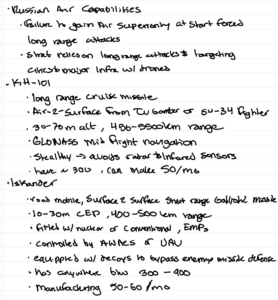 • Russian Air Capabilities
• Failure to gain Air Superiority at start forced
long range attacks
• Strat relies on long range attacks & targeting
cities/major infra w/ drones
• KH-101
• long range cruise missile
• Air-2-Surface from Tu bomber or SU-34 fighter
• 30-70m alt, km range
• GLONASS mid flight navigation
• Stealthy → avoids radar & infrared sensors
• have ~ 300, can make 50/mo
• Iskander
• road mobile, Surface 2 Surface short range missile
• 10-30m CEP, 400-500 km range
• fitted w/ nuclear or conventional, EMPs
• controlled by AWACS or UAV
• equipped w/ decoys to bypass enemy missile defense
• has anywhere btw 300-900
• Manufacturing 50-60/mo